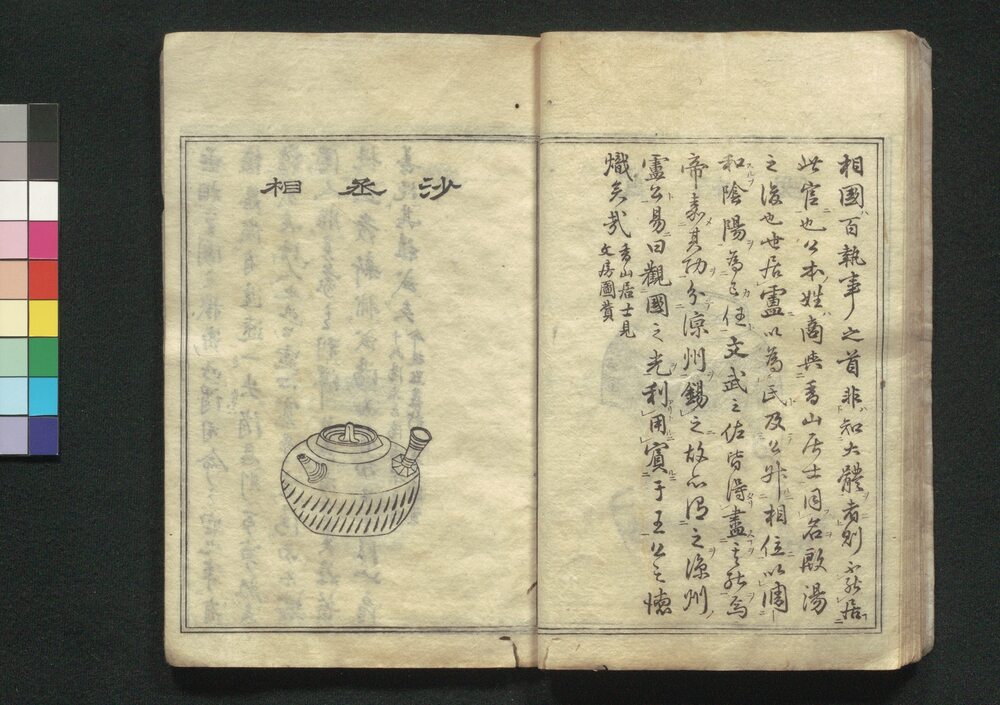 相國百執事之首非知大體者則不能居
此官也公本姓商與香山居士同名殷湯
之後也世居盧以為氏及公升相位以調
和陰陽為己任文武之佐皆得盡其能焉
帝嘉其功分涼州錫之故亦得之涼州
盧公易曰觀國之光利用賓于王公之德
熾矣哉
香山居士見
文房圖贊
沙丞相